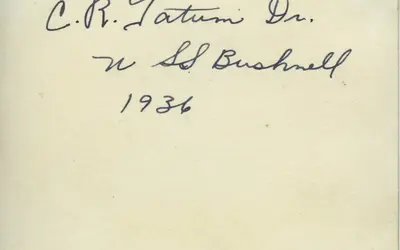 C. R. Tatum Dr.
n SS Bushnell
1936